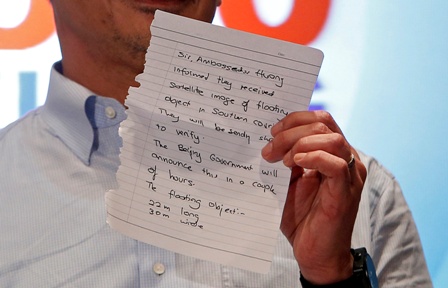 Sir, Ambassador Huang
informed they received
satellite image of floating
object in Southern corr
They will be sendy sh
to verify.
The Beijing Government will
announce this in a couple
of hours.
The floating object:-
22m long
30m wide